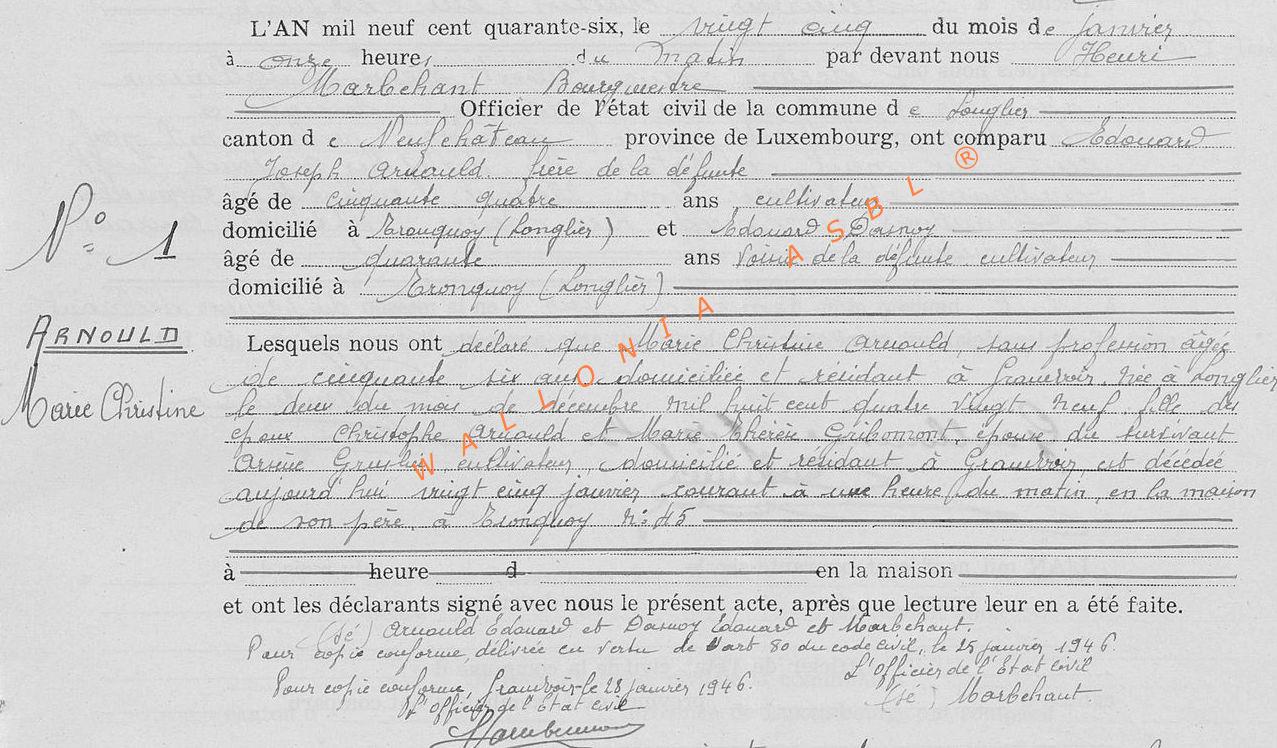 L'AN mil neuf cent quarante-six, le vingt cinq du mois de janvier
à onze heures du matin par devant nous Henri
Marbehant Bourgmestre
Officier de l'état civil de la commune de Longlier
canton de Neufchâteau province de Luxembourg, ont comparu Edouard
Joseph Arnould frère de la défunte
âgé de cinquante quatre ans cultivateur
domicilié à Tronquoy (Longlier) et Edouard Dasnoy
âgé de quarante ans voisin de la défunte cultivateur
domicilié à Tronquoy (Longlier)
N° 1
ARNOULD
Marie Christine
Lesquels nous ont déclaré que Marie Christine Arnould, sans profession âgée
de cinquante six ans domiciliée et résidant à Grandvoir, née à Longlier
le deux du mois de décembre mil huit cent quatre vingt neuf fille des
époux Christophe Arnould et Marie Thérèse Gribomont, épouse du survivant
Arsène cultivateur, domicilié et résidant à Grandvoir est décédée
aujourd'hui vingt cinq janvier courant à une heure du matin, en la maison
de son père, à Tronquoy N° 45
à heure d en la maison
et ont les déclarants signé avec nous le présent acte, après que lecture leur en a été faite.
(sé) Arnould Edouard et Dasnoy Edouard et Marbehant.
Pour copie conforme, délivrée en vertu de l'art 80 du code civil, le 25 janvier 1946.
L'Officier de l'Etat civil
(sé) Marbehant
Pour copie conforme, Grandvoir le 28 janvier 1946.
L'Officier de l'état civil
WALLONIA ASBL ®